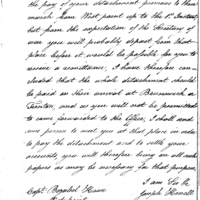 the pay of your detachment previous to their
march from West point up to the 1st Instant
but from the expectation of the Secretary of
war you will probably depart from that
place before it would be possible for you to
receive a remittance, I have therefore con-
cluded that the whole detachment should
be paid on their arrival at Brunswick or
Trenton, and as you will not be permitted
to come forward to the Office, I shall send
one person to meet you at that place in order
to pay the detachment and to settle your
accounts, you will therefore bring on all such
papers as may be necessary for that purpose.
I am Sir &c
Joseph Howell
Capt. Bezaleel Howe